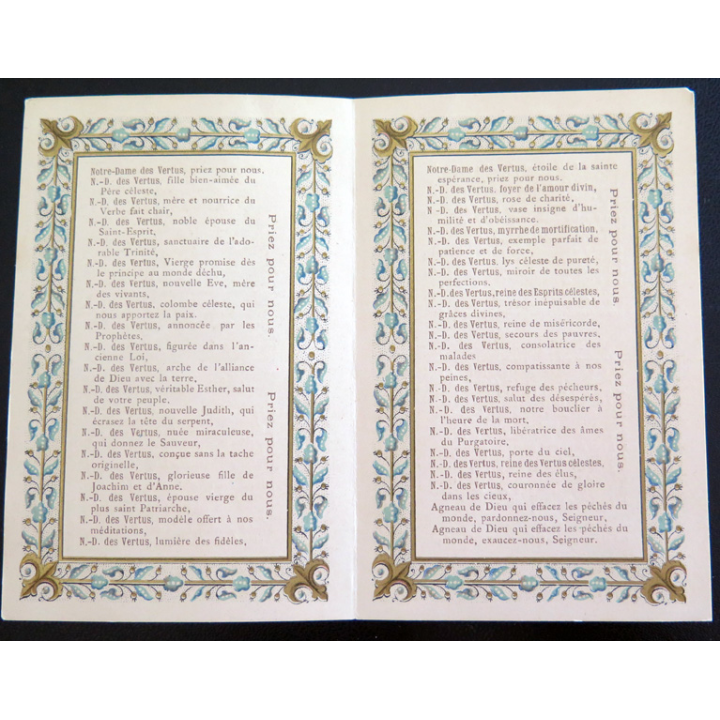 Notre-Dame des Vertus, priez pour nous.
N.-D. des Vertus, fille bien-aimée du
Père céleste,
N.-D. des Vertus, mère et nourrice du
Verbe fait chair,
N.-D. des Vertus, noble épouse du
Saint-Esprit,
N.-D. des Vertus, sanctuaire de l'ado-
rable Trinité,
N.-D. des Vertus, Vierge promise dès
le principe au monde déchu,
N.-D. des Vertus, nouvelle Eve, mère
des vivants,
N.-D. des Vertus, colombe céleste, qui
nous apporta la paix.
N.-D. des Vertus, annoncée par les
Prophètes,
N.-D. des Vertus, figurée dans l'an-
cienne Loi,
N.-D. des Vertus, arche de l'alliance
de Dieu avec la terre,
N.-D. des Vertus, véritable Esther, salut
de votre peuple,
N.-D. des Vertus, nouvelle Judith, qui
écrasez la tête du serpent,
N.-D. des Vertus, nuée miraculeuse,
qui donnez le Sauveur,
N.-D. des Vertus, conçue sans la tache
originelle,
N.-D. des Vertus, glorieuse fille de
Joachim et d'Anne.
N.-D. des Vertus, épouse vierge du
plus saint Patriarche,
N.-D. des Vertus, modèle offert à nos
méditations,
N.-D. des Vertus, lumière des fidèles,
Priez pour nous.
Priez pour nous.
Notre-Dame des Vertus, étoile de la sainte
espérance, priez pour nous.
N.-D. des Vertus, foyer de l'amour divin,
N.-D. des Vertus, rose de charité,
N.-D. des Vertus, vase insigne d'hu-
milité et d'obéissance.
N.-D. des Vertus, myrrhe de mortification,
N.-D. des Vertus, exemple parfait de
patience et de force,
N.-D. des Vertus, lys céleste de pureté,
N.-D. des Vertus, miroir de toutes les
perfections.
N.-D. des Vertus, reine des Esprits célestes,
N.-D. des Vertus, trésor inépuisable de
grâces divines,
N.-D. des Vertus, reine de miséricorde,
N.-D. des Vertus, secours des pauvres,
N.-D. des Vertus, consolatrice des
malades
N.-D. des Vertus, compatissante à nos
peines,
N.-D. des Vertus, refuge des pécheurs,
N.-D. des Vertus, salut des désespérés,
N.-D. des Vertus, notre bouclier à
l'heure de la mort,
N.-D. des Vertus, libératrice des âmes
du Purgatoire,
N.-D. des Vertus, porte du ciel,
N.-D. des Vertus, reine des Vertus célestes,
N.-D. des Vertus, reine des élus,
N.-D. des Vertus, couronnée de gloire
dans les cieux,
Agneau de Dieu qui effacez les péchés du
monde, pardonnez-nous, Seigneur,
Agneau de Dieu qui effacez les péchés du
monde, exaucez-nous, Seigneur.
Priez pour nous.
Priez pour nous.